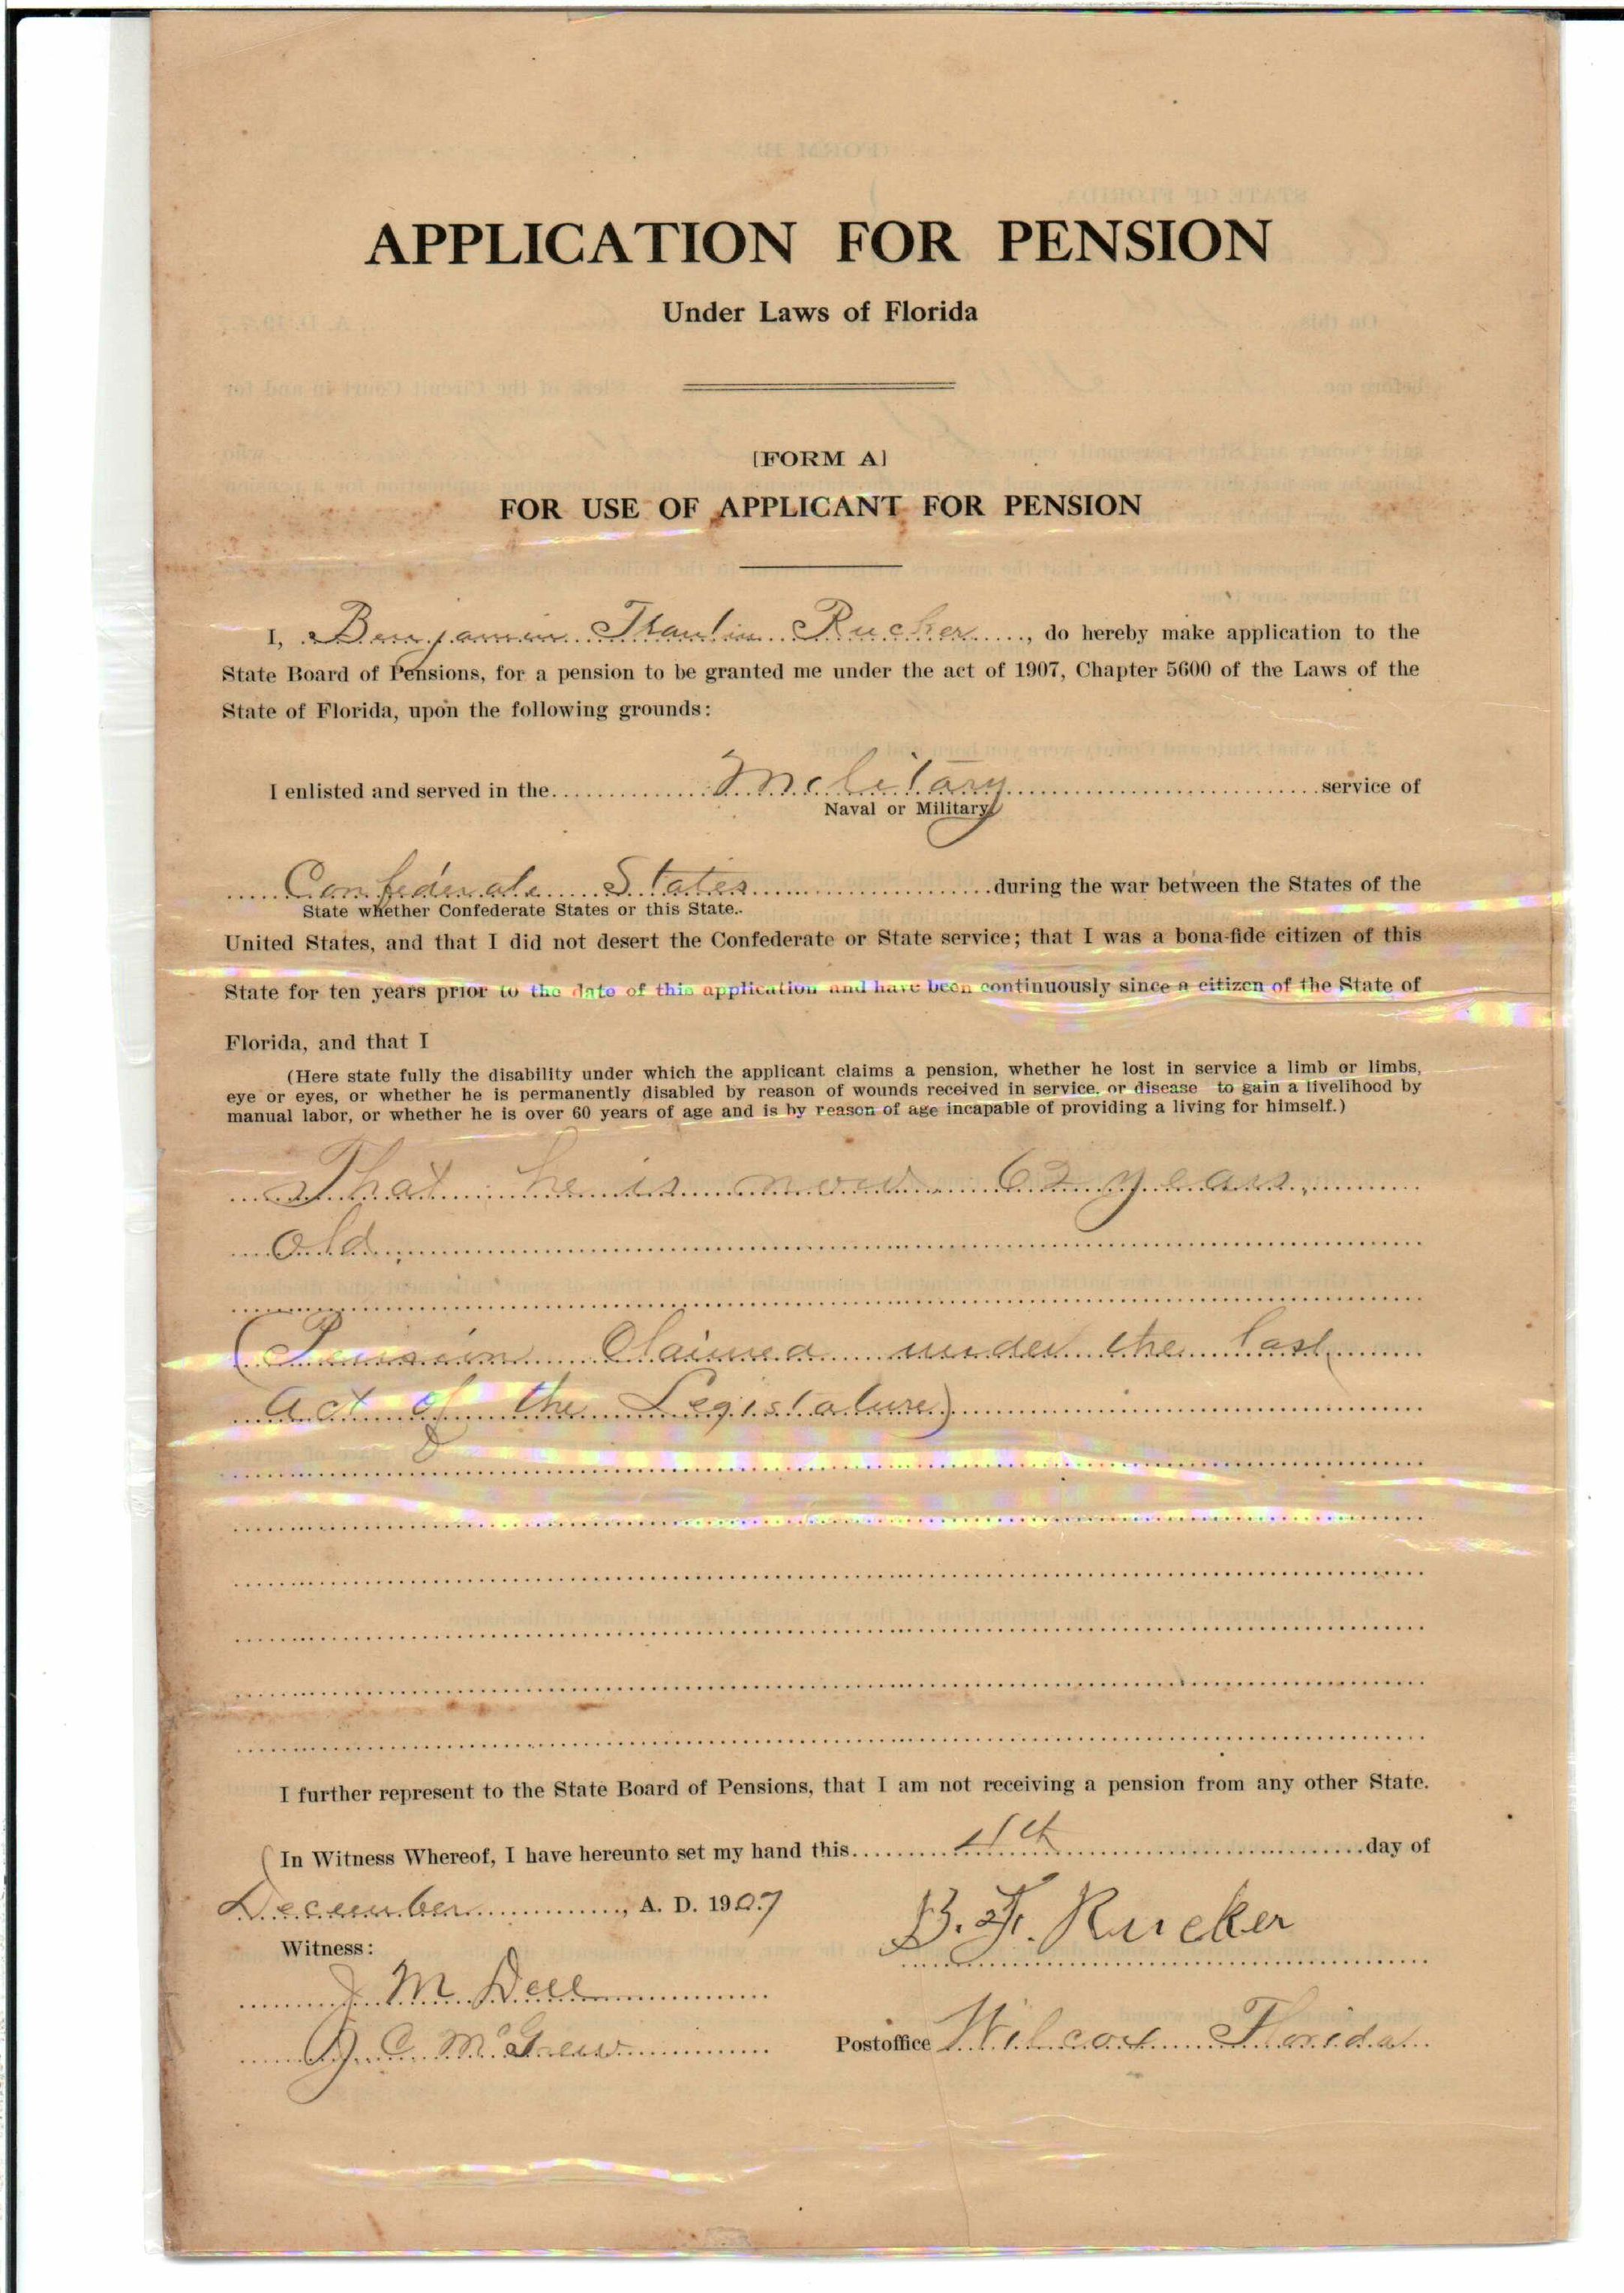 APPLICATION FOR PENSION
Under Laws of Florida
[FORM A]
FOR USE OF APPLICANT FOR PENSION
I, Benjamin Franklin Rucker, do hereby make application to the
State Board of Pensions, for a pension to be granted me under the act of 1907, Chapter 5600 of the Laws of the
State of Florida, upon the following grounds:
I enlisted and served in the Military service of
Naval or Military
Confederate States during the war between the States of the
State whether Confederate States or this State..
United States, and that I did not desert the Confederate or State service; that I was a bona-fide citizen of this
State for ten years prior to the date of this application and have been continuously since a citizen of the State of
Florida, and that I
(Here state fully the disability under which the applicant claims a pension, whether he lost in service a limb or limbs,
eye or eyes, or whether he is permanently disabled by reason of wounds received in service, or disease to gain a livelihood by
manual labor, or whether he is over 60 years of age and is by reason of age incapable of providing a living for himself.)
That he is now 62 years
old
(Pension Claimed under the last
act of the Legislature)
I further represent to the State Board of Pensions, that I am not receiving a pension from any other State.
(In Witness Whereof, I have hereunto set my hand this 4th day of
December, A. D. 1907
B. F. Rucker
Witness:
J. M. Dell
J. C. McGrew
Postoffice Wilcox Florida